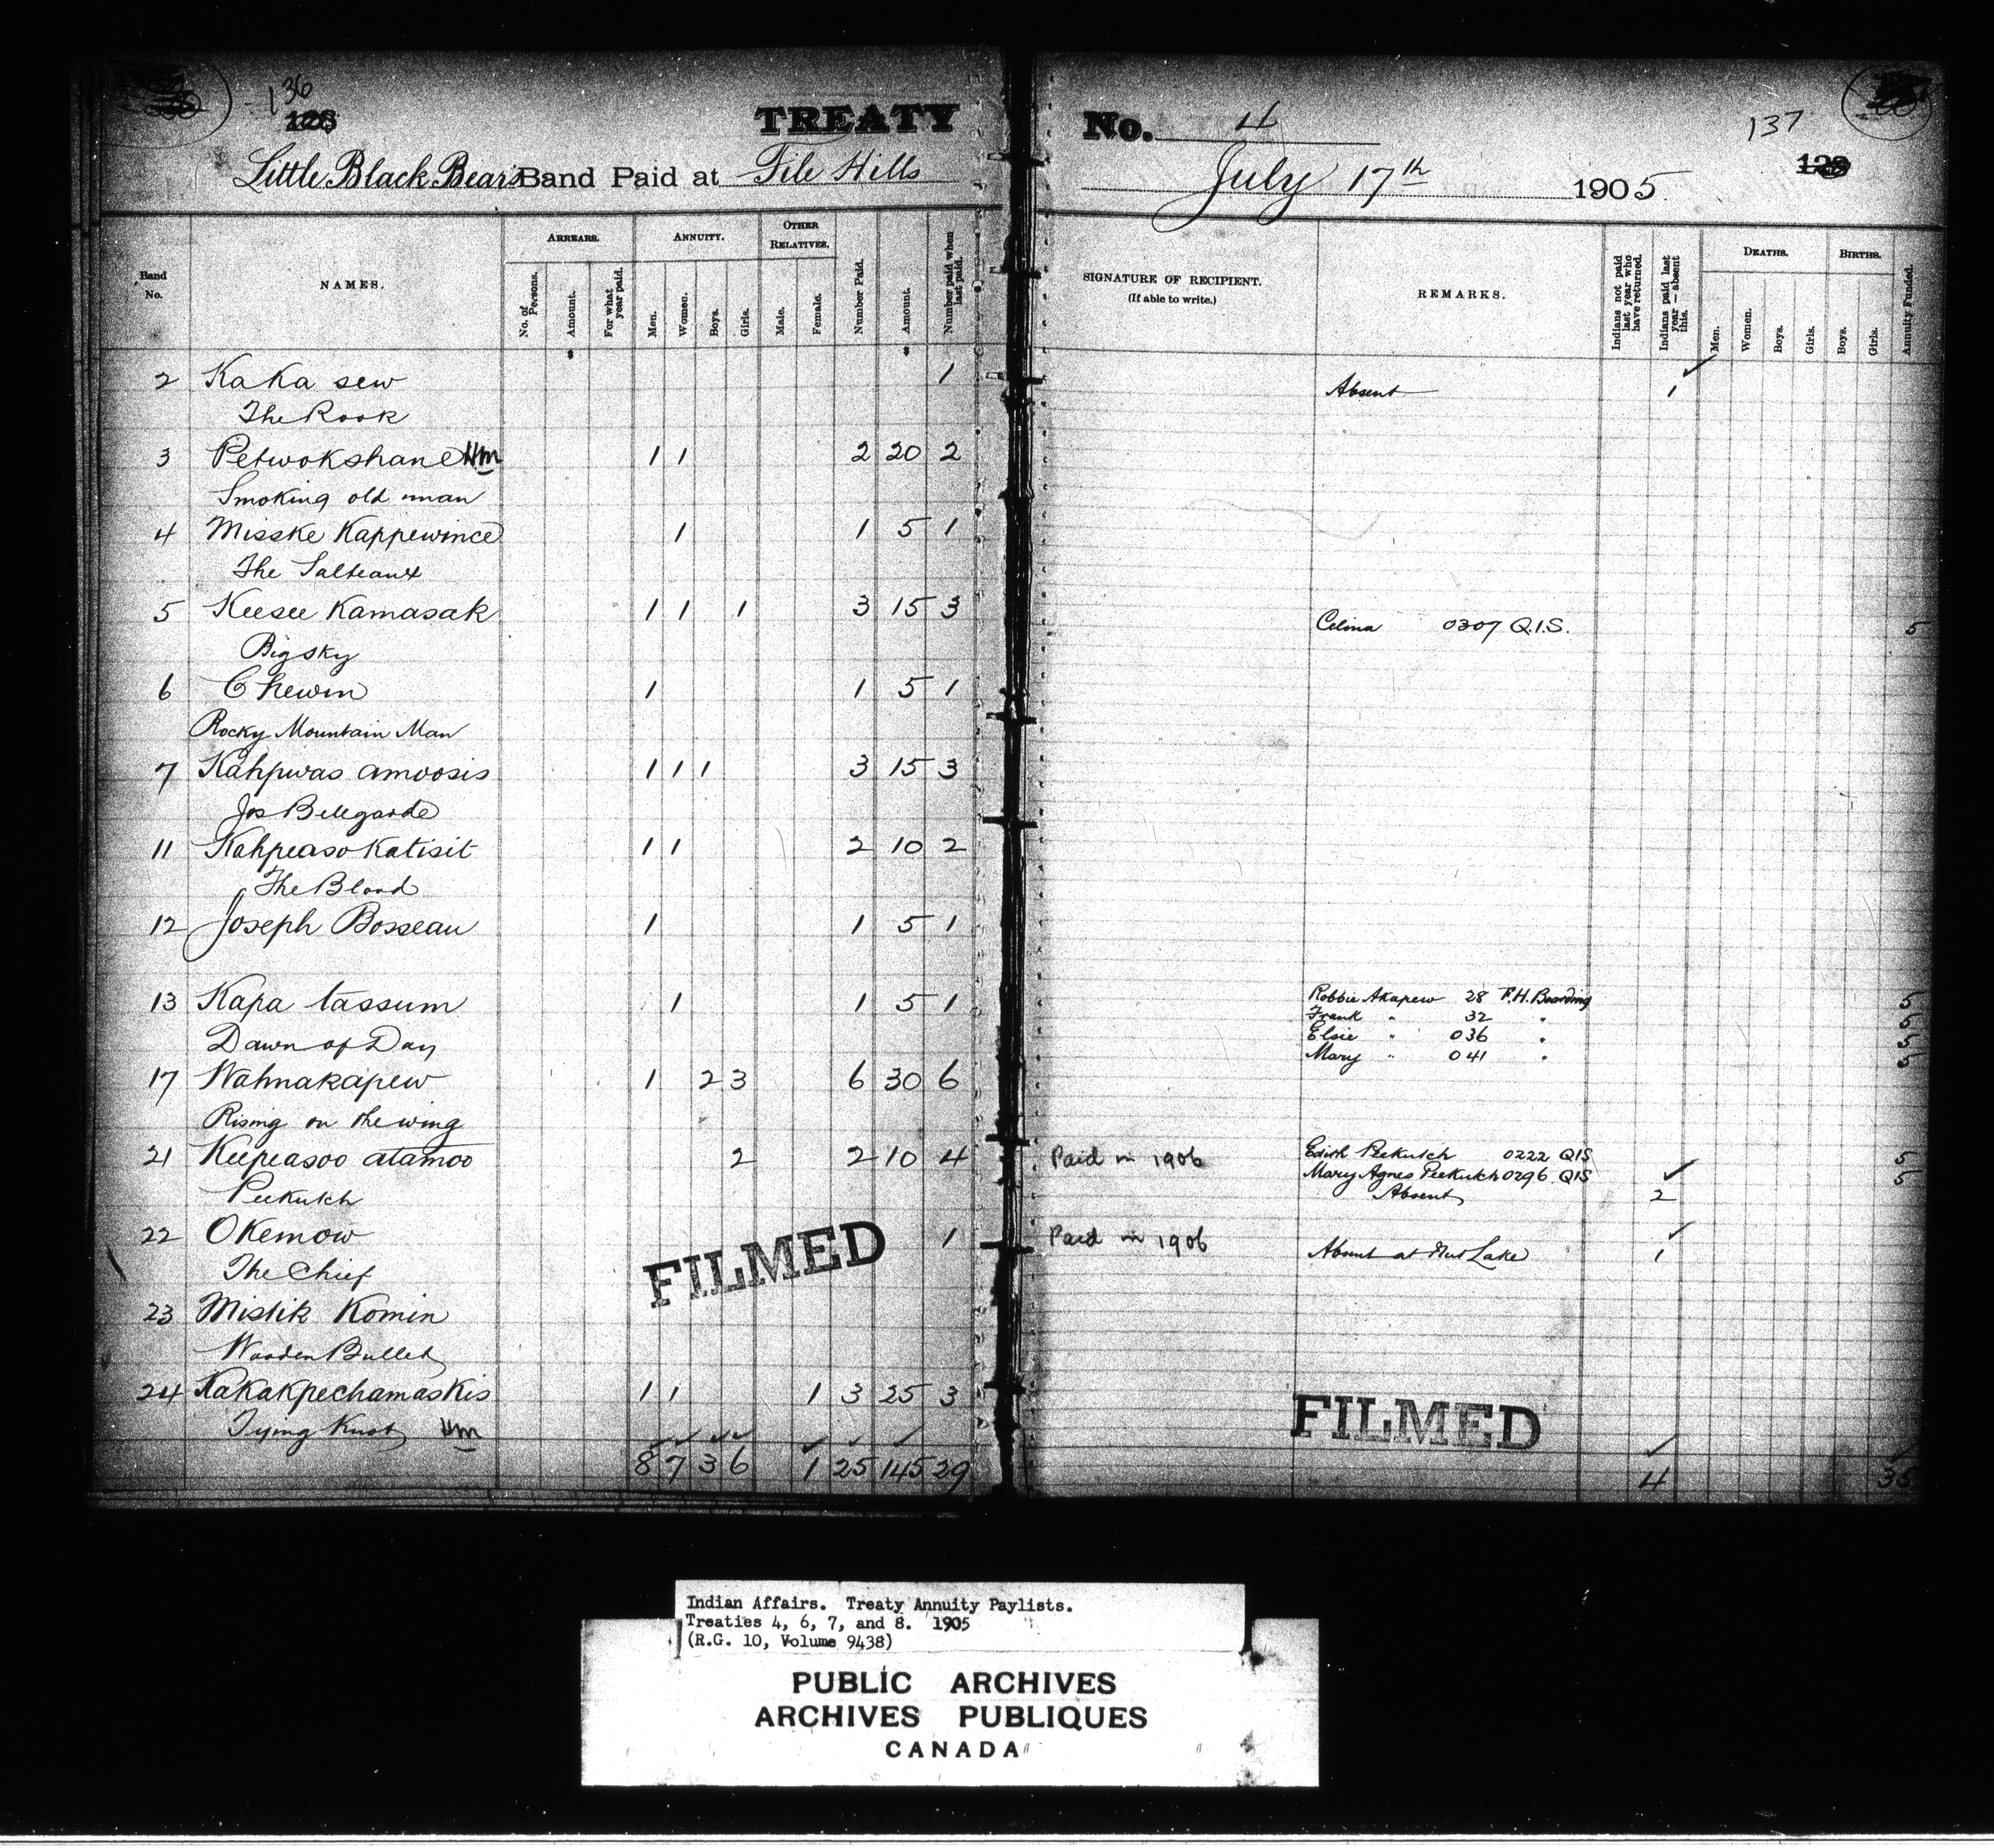 136
128
TREATY No. 4
137
128
Little Black Bear's Band Paid at File Hills July 17th 1905
Band No.
NAMES.
ARREARS.
No. of Persons.
Amount.
For what year paid.
ANNUITY.
Men.
Women.
Boys.
Girls.
OTHER RELATIVES.
Male.
Female.
Number Paid.
Amount.
Number paid when last paid.
SIGNATURE OF RECIPIENT.
(If able to write.)
REMARKS.
Indians not paid last year who have returned.
Indians paid last year — absent this.
DEATHS.
Men.
Women.
Boys.
Girls.
BIRTHS.
Boys.
Girls.
Annuity Funded.
2 Ka Ka sew 1 Absent 1
The Rook
3 Petwokshane Hm 1 1 2 20 2
Smoking old man
4 Misske Kappewince 1 1 5 1
The Salteaux
5 Keesee Kamasak 1 1 1 3 15 3 Celina 0307 Q.I.S. 5
Big sky
6 Chewin 1 1 5 1
Rocky Mountain Man
7 Kahpwas amoosis 1 1 1 3 15 3
Jos Bellegarde
11 Kahpeaso Katisit 1 1 2 10 2
The Blood
12 Joseph Bosseau 1 1 5 1
13 Kapa tassum 1 1 5 1 Robbie Akapew 28 F.H. Boarding 5
Frank " 32 " 5
Dawn of Day Elsie " 036 " 5
Mary " 041 " 5
17 Wahnakapew 1 2 3 6 30 6
Rising on the wing
21 Keepeasoo atamoo 2 2 10 4 Paid in 1906 Edith Peekutch 0222 QIS 5
Mary Agnes Peekutch 0296 QIS 5
Peekutch Absent 2
22 Okemow 1 Paid in 1906 Absent at Nut Lake 1
The Chief
FILMED
23 Mistik Komin
Wooden Bullet
24 Kakakpechamaskis 1 1 1 3 25 3
Tying Knot Hm
FILMED
8 7 3 6 1 25 145 29 4 35
Indian Affairs. Treaty Annuity Paylists.
Treaties 4, 6, 7, and 8. 1905
(R.G. 10, Volume 9438)
PUBLIC ARCHIVES
ARCHIVES PUBLIQUES
CANADA